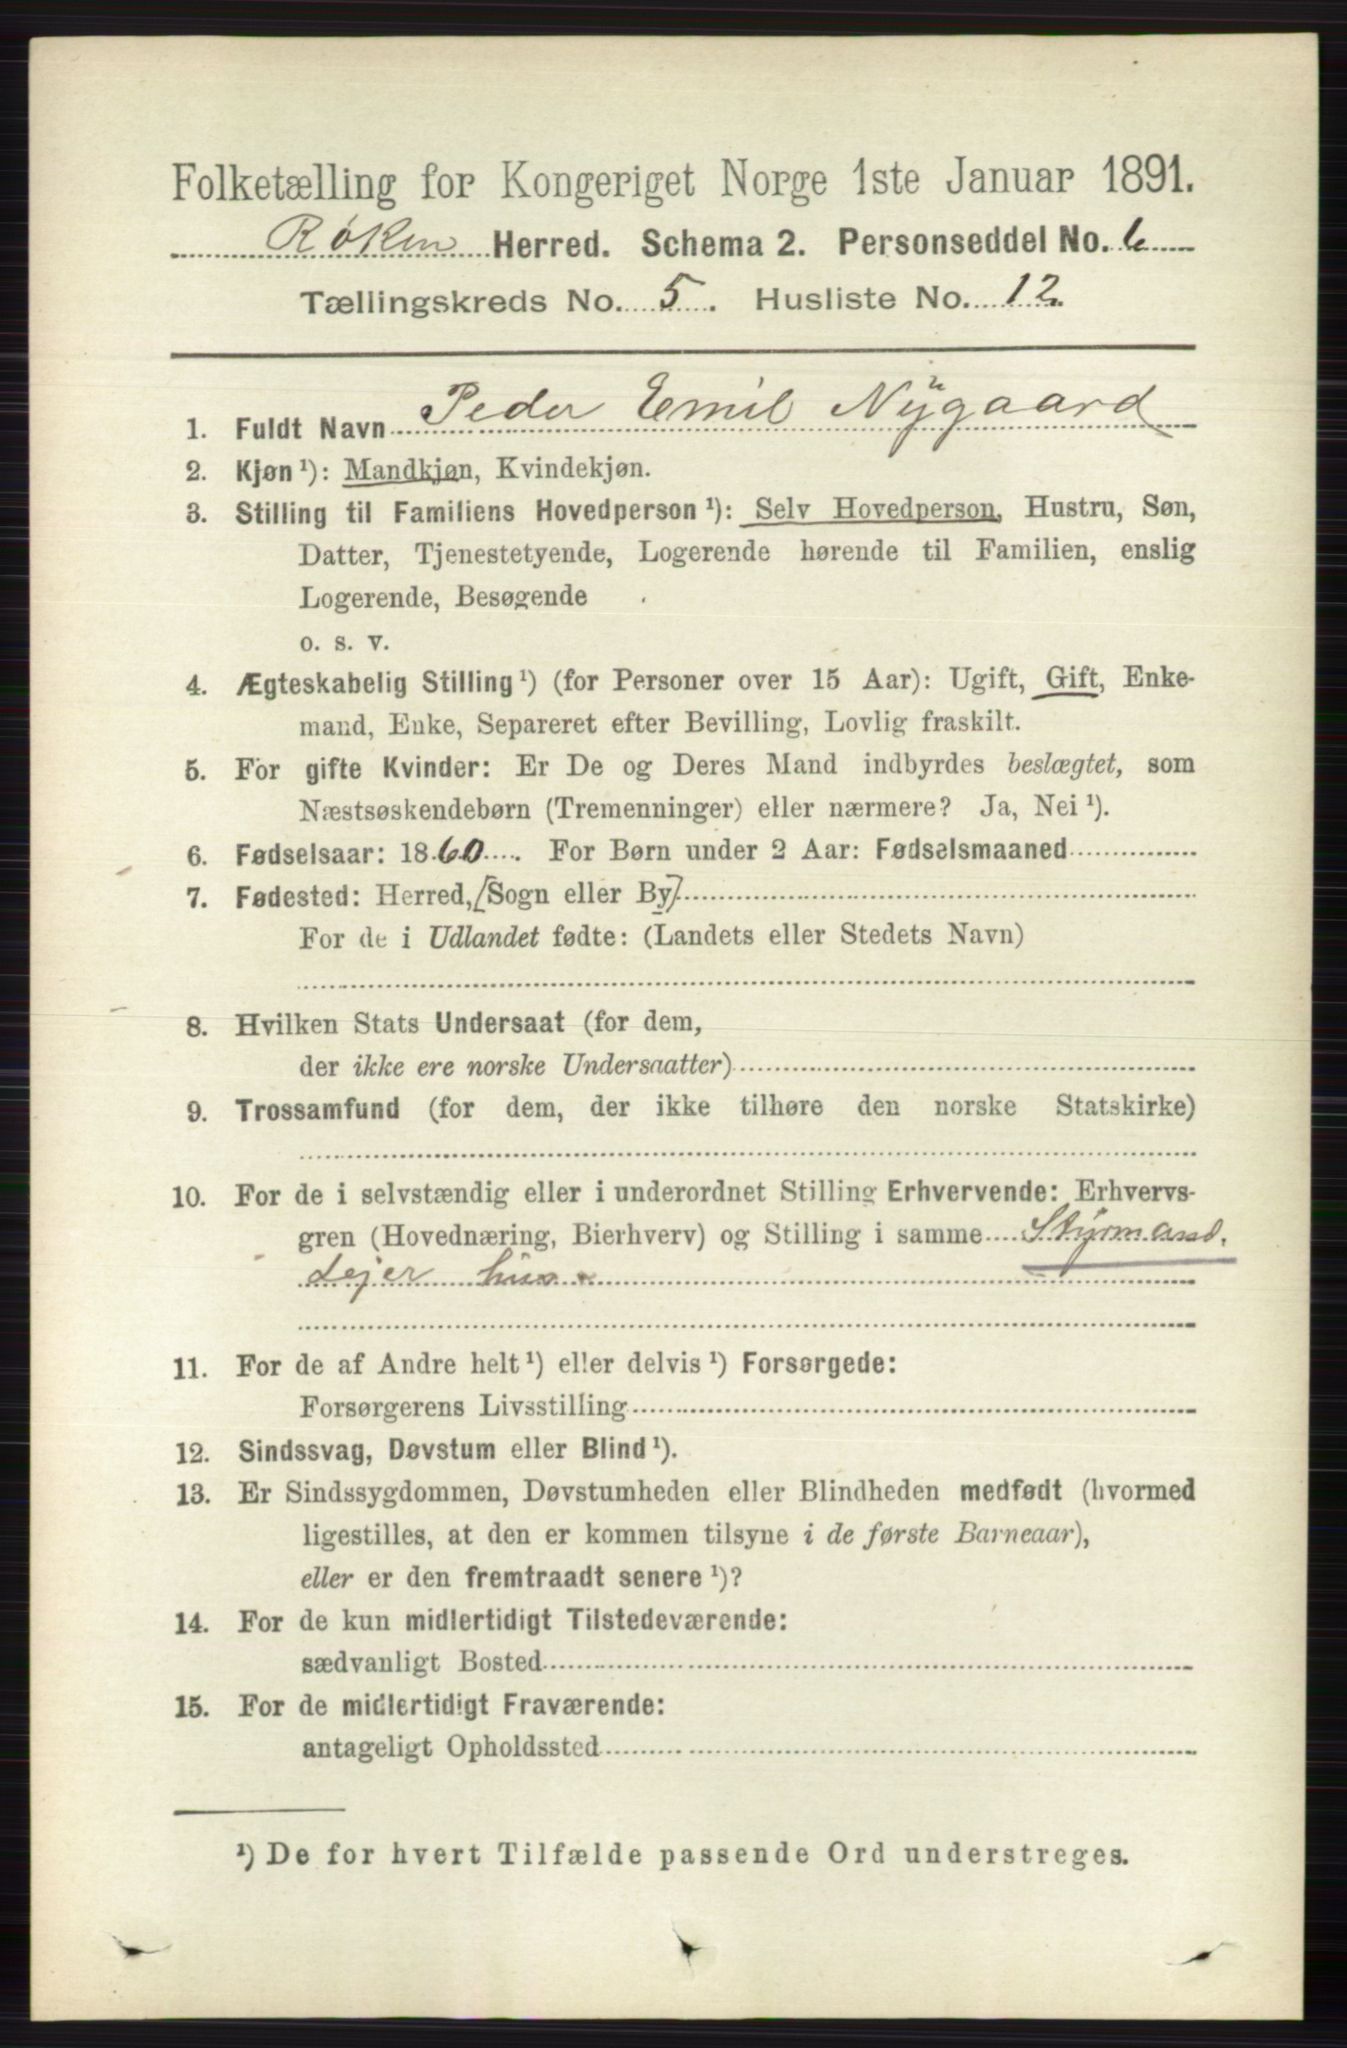 Folketælling for Kongeriget Norge 1ste Januar 1891.
Røken Herred. Schema 2. Personseddel No. 6
Tællingskreds No. 5. Husliste No. 12.
1. Fuldt Navn Peder Emil Nÿgaard
2. Kjøn ¹): Mandkjøn, Kvindekjøn.
3. Stilling til Familiens Hovedperson ¹): Selv Hovedperson, Hustru, Søn,
Datter, Tjenestetyende, Logerende hørende til Familien, enslig
Logerende, Besøgende
o. s. v.
4. Ægteskabelig Stilling ¹) (for Personer over 15 Aar): Ugift, Gift, Enke-
mand, Enke, Separeret efter Bevilling, Lovlig fraskilt.
5. For gifte Kvinder: Er De og Deres Mand indbyrdes beslægtet, som
Næstsøskendebørn (Tremenninger) eller nærmere? Ja, Nei ¹).
6. Fødselsaar: 1860. For Børn under 2 Aar: Fødselsmaaned
7. Fødested: Herred, [Sogn eller By]
For de i Udlandet fødte: (Landets eller Stedets Navn)
8. Hvilken Stats Undersaat (for dem,
der ikke ere norske Undersaatter)
9. Trossamfund (for dem, der ikke tilhøre den norske Statskirke)
10. For de i selvstændig eller i underordnet Stilling Erhvervende: Erhvervs-
gren (Hovednæring, Bierhverv) og Stilling i samme Styrmand.
Lejer hus
11. For de af Andre helt ¹) eller delvis ¹) Forsørgede:
Forsørgerens Livsstilling
12. Sindssvag, Døvstum eller Blind ¹).
13. Er Sindssygdommen, Døvstumheden eller Blindheden medfødt (hvormed
ligestilles, at den er kommen tilsyne i de første Barneaar),
eller er den fremtraadt senere ¹)?
14. For de kun midlertidigt Tilstedeværende:
sædvanligt Bosted
15. For de midlertidigt Fraværende:
antageligt Opholdssted
¹) De for hvert Tilfælde passende Ord understreges.